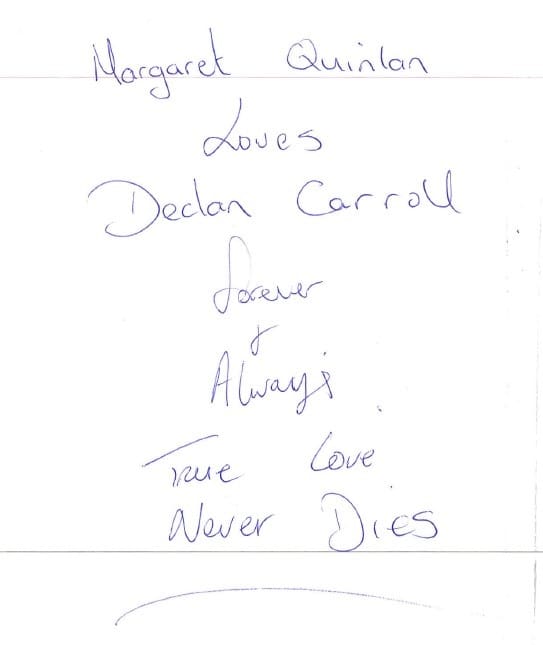 Margaret Quinlan
Loves
Declan Carroll
forever
&
Always
True Love
Never Dies